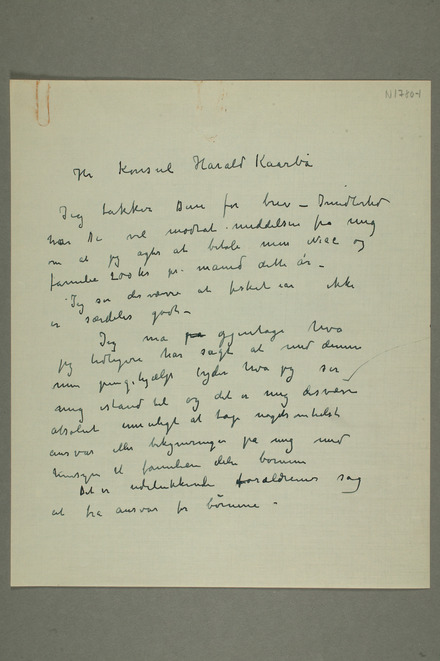 N 1780-1
Hr Konsul Harald Kaarbø
Jeg takker Dem for brev – Imidlertid
har De vel modtat meddelsen fra mig
om at jeg agter at betale min niece og
familie 200 Kr pr. maaned dette år –
Jeg ser desværre at fisket ikke
er særdeles godt –
Jeg må gjentage hva
jeg tidligere har sagt at med denne
min pengehjælp yder hva jeg ser
mig istand til og det er mig desværre
absolut umuligt at tage nogensomhelst
ansvar eller bekymringer på mig med
hensyn til familien eller børnene
Det er udelukkende forældrenes sag
at ha ansvar for børnene –